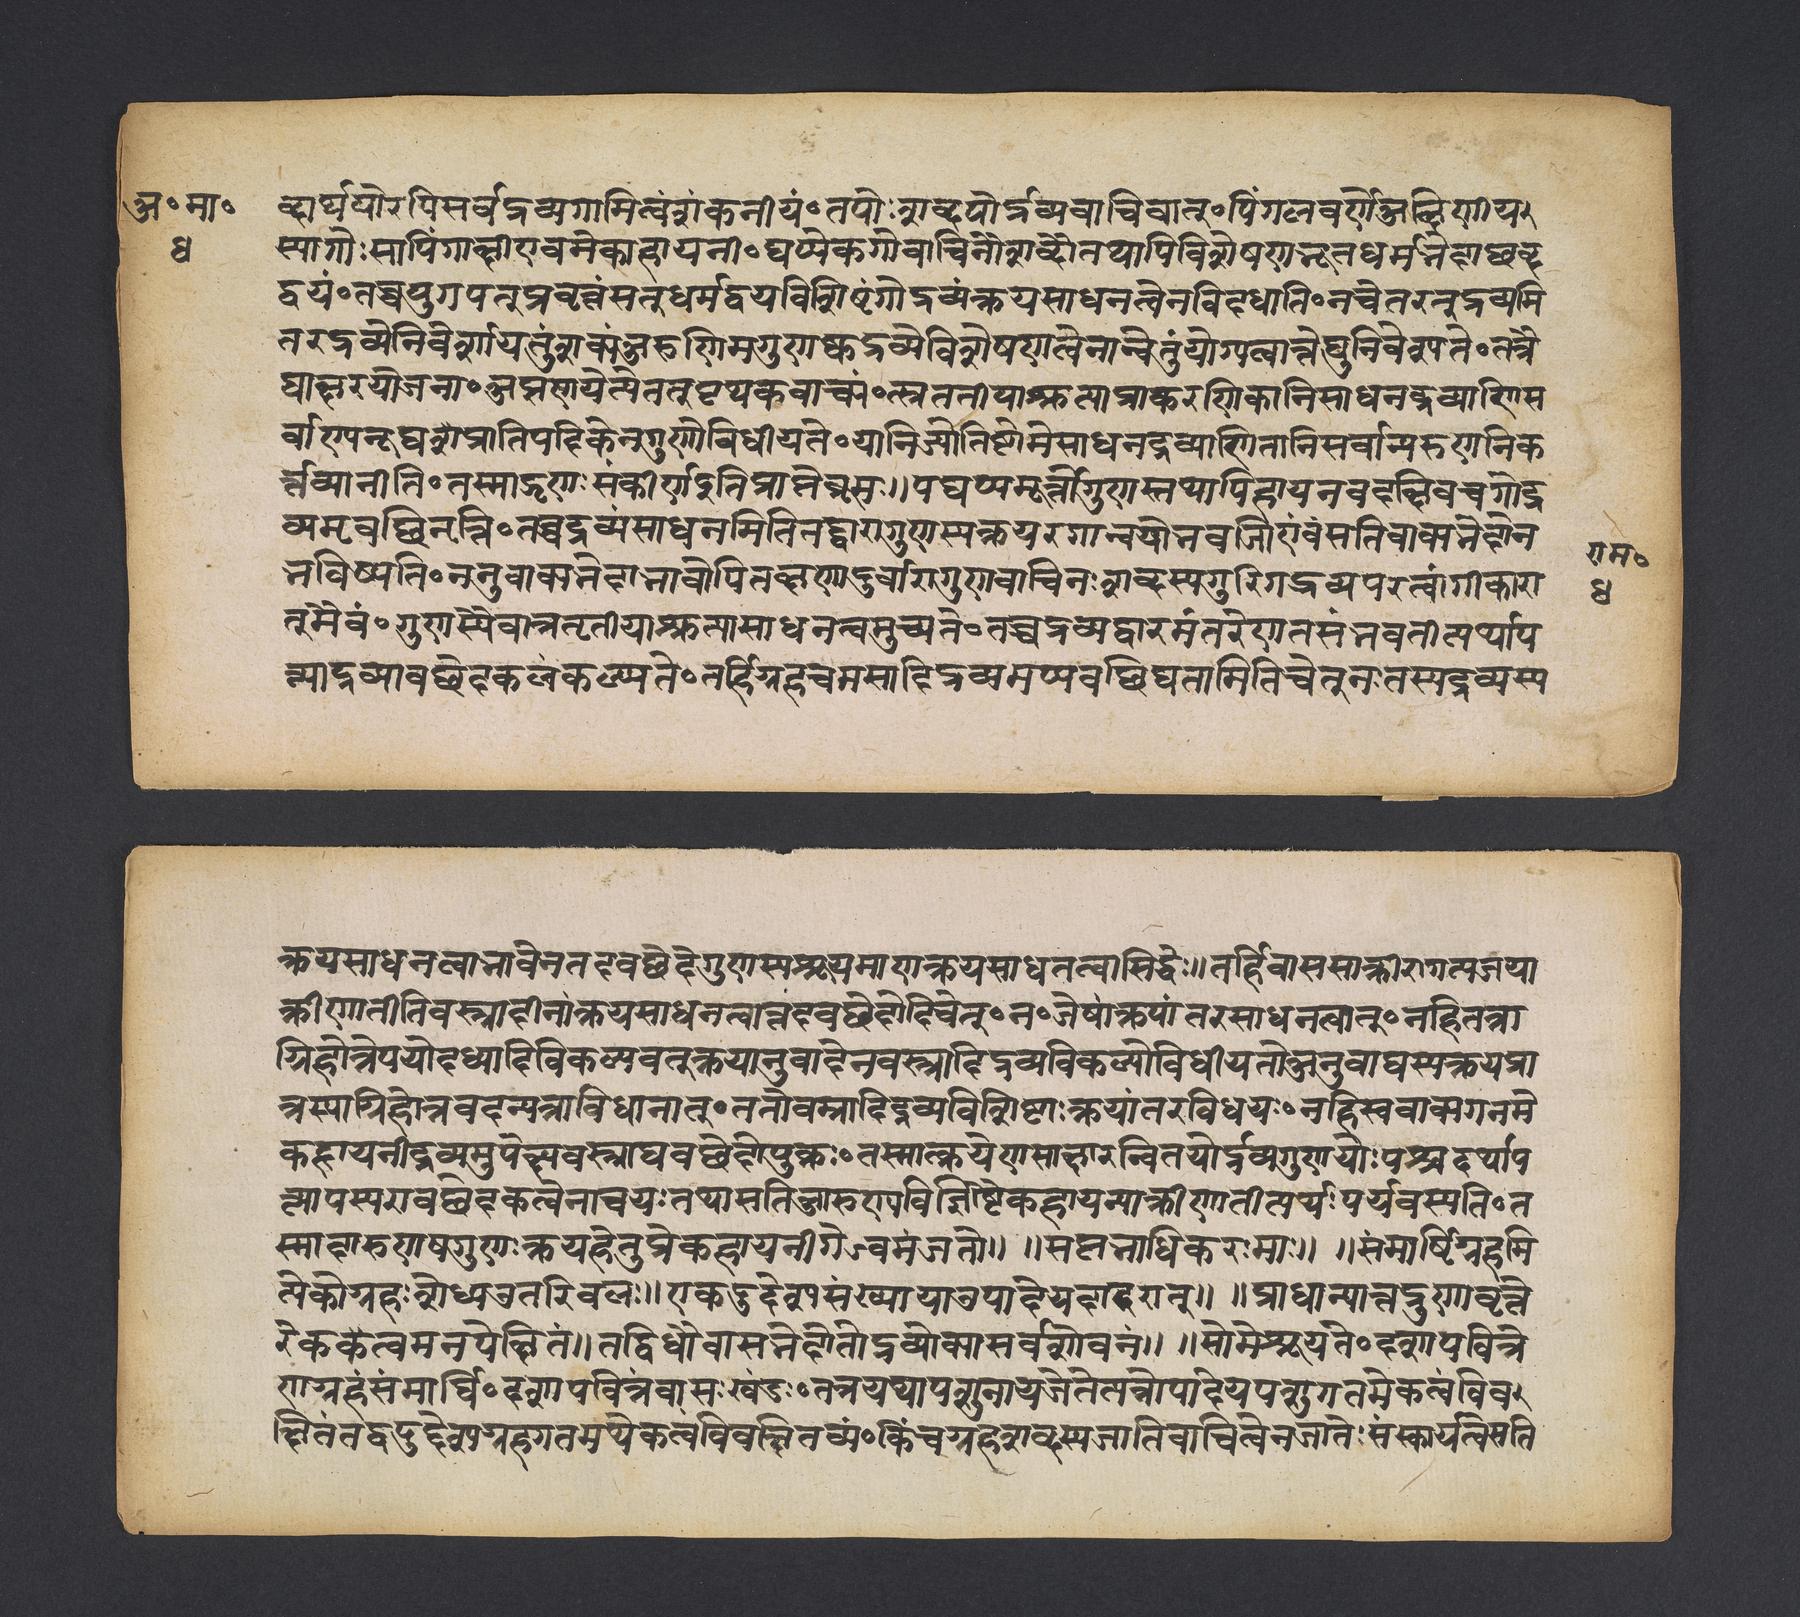 अ॰मा॰
ध
ब्दार्थयोरपिसर्वद्रव्यगामित्वंशंकनीयं॰तयोःशब्दयोर्द्रव्यवाचित्वात्॰पिंगलवर्णेअक्षिणीय
स्यागोःसापिंगाक्षीएवमेकाहायनी॰यद्यप्येकगोवाचिनौशब्दौतथापिविशेषणभूतधर्मभेदाच्छब्द
द्वयं॰तच्चयुगपत्प्रवृत्तंसत्धर्मद्वयविशिष्टंगोद्रव्यंक्रयसाधनत्वेनविदधाति॰नचेतरत्द्रव्यमि
तरद्रव्येनिवेशयितुंशक्यंअरुणिमगुणश्चद्रव्येविशेषणत्वेनान्वेतुंयोग्यत्वात्तेषुनिवेश्यते॰तत्रै
षाक्षरयोजना॰अरुणयेत्येतत्पृथक्वाक्यं॰तत्रतृतीयाश्रुत्याप्राकरणिकानिसाधनद्रव्याणिस
र्वाण्यनूद्यशप्रातिपदिकेनगुणोविधीयते॰यानिज्योतिष्टोमेसाधनद्रव्याणितानिसर्वाण्यरुणानिक
र्त्तव्यानीति॰तस्माद्गुणःसंकीर्णइतिप्राप्तेब्रूमः॥यद्यप्यमूर्त्तोगुणस्तथापिहायनवदक्षिवच्चगोद्र
व्यमवच्छिनत्ति॰तच्चद्रव्यंसाधनमितितद्द्वारागुणस्यक्रय
नविष्यति॰ननुवाक्यभेदाभावेपि
त्मैवं॰गुणस्यैवात्रतृतीयाश्रुत्यासाधनत्वमुच्यते॰तच्चद्रव्यद्वारमंतरेणनसंभवतीत्यर्थाप
त्त्याद्रव्यावच्छेदकत्वंकल्प्यते॰तर्हिग्रहचमसादिद्रव्यमप्यवच्छिद्यतामितिचेत्नतस्यद्रव्यस्य
राम॰
ध
क्रयसाधनत्वाभावेनतदवच्छेदेगुणस्यश्रूयमाणक्रयसाधनत्वासिद्धेः॥तर्हिवाससाक्रीणात्यजया
क्रीणातीतिवस्त्रादीनांक्रयसाधनत्वात्तदवच्छेदोस्त्वितिचेत्॰न॰तेषांक्रयांतरसाधनत्वात्॰नहितत्रा
ग्निहोत्रेपयोदध्यादिविकल्पवत्क्रयानुवादेनवस्त्रादिद्रव्यविकल्पोविधीयतेअनुवाद्यस्यक्रयप्रा
प्तस्याग्निहोत्रवदन्यत्राविधानात्॰ततोवस्त्रादिद्रव्यविशिष्टाःक्रयांतरविधयः॰नहिस्ववाक्यगतमे
कहायनीद्रव्यमुपेक्ष्यवस्त्राद्यवच्छेदोयुक्तः॰तस्मात्क्रयेणसाक्षादन्वितयोर्द्रव्यगुणयोःपश्चादर्थाप
त्त्यापरस्परावच्छेदकत्वेनान्वयःतथासतिआरुण्यविशिष्टैकहायन्याक्रीणातीत्यर्थःपर्यवस्यति॰त
स्मादारुण्यगुणःक्रयहेतु
त्येकोग्रहःशोध्यउतखिलः॥एकउद्देश्यसंख्यायाउपादेयवदादरात्॥ ॥प्राधान्यात्तद्गुणावृत्ते
रेकैकत्वमनपेक्षितं॥तद्विधौवाक्यभेदोतोद्रव्योक्त्यासर्वशोधनं॥ ॥सोमेश्रूयते॰दशापवित्रे
णग्रहंसंमार्ष्टि॰दशापवित्रंवासःखंडः॰तत्रयथापशुनायजेतेत्यत्रोपादेयपशुगतमेकत्वंविव
क्षितंतद्वदुद्देश्यग्रहगतमप्येकत्वंविवक्षितव्यं॰किंचग्रहशब्दस्यजातिवाचित्वेनजातेःसंस्कार्यत्वेसति